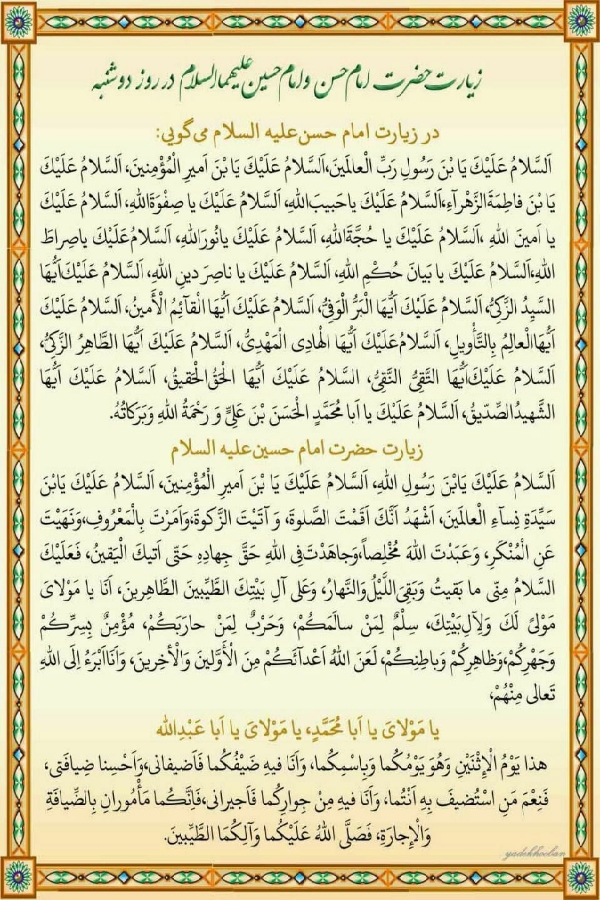 زیارت حضرت امام حسن و امام حسین علیهماالسلام در روز دوشنبه
در زیارت امام حسن علیه السلام می‌گویی:
اَلسَّلامُ عَلَیْكَ یَا بْنَ رَسُولِ رَبِّ الْعالَمینَ،اَلسَّلامُ عَلَیْكَ یَا بْنَ اَمیرِ الْمُؤْمِنینَ، اَلسَّلامُ عَلَیْكَ
یَا بْنَ فاطِمَةَ الزَّهْرآءِ،اَلسَّلامُ عَلَیْكَ یاحَبیبَ اللهِ، اَلسَّلامُ عَلَیْكَ یا صِفْوَةَ اللهِ، اَلسَّلامُ عَلَیْكَ
یا اَمینَ اللهِ ،اَلسَّلامُ عَلَیْكَ یا حُجَّةَ اللهِ، اَلسَّلامُ عَلَیْكَ یانُورَ اللهِ، اَلسَّلامُ عَلَیْكَ یاصِراطَ
اللهِ،اَلسَّلامُ عَلَیْكَ یا بَیانَ حُكْمِ اللهِ، اَلسَّلامُ عَلَیْكَ یا ناصِرَ دینِ اللهِ، اَلسَّلامُ عَلَیْكَ اَیُّهَا
السَّیِّدُ الزَّكِیُّ، اَلسَّلامُ عَلَیْكَ اَیُّهَا الْبَرُّ الْوَفِیُّ، اَلسَّلامُ عَلَیْكَ اَیُّهَا الْقآئِمُ الْأَمینُ، اَلسَّلامُ عَلَیْكَ
اَیُّهَاالْعالِمُ بِالتَّأْویلِ، اَلسَّلامُ عَلَیْكَ اَیُّهَا الْهادِی الْمَهْدِیُّ، اَلسَّلامُ عَلَیْكَ اَیُّهَا الطّاهِرُ الزَّكِیُّ،
اَلسَّلامُ عَلَیْكَ اَیُّهَا التَّقِیُّ النَّقِیُّ، السَّلامُ عَلَیْكَ اَیُّهَا الْحَقُّ الْحَقیقُ، اَلسَّلامُ عَلَیْكَ اَیُّهَا
الشَّهیدُ الصِّدّیقُ، اَلسَّلامُ عَلَیْكَ یا اَبا مُحَمَّدٍ الْحَسَنَ بْنَ عَلِیٍّ وَ رَحْمَةُ اللهِ وَبَرَكاتُهُ.
زیارت حضرت امام حسین علیه السلام
اَلسَّلامُ عَلَیْكَ یَابْنَ رَسُولِ اللهِ، اَلسَّلامُ عَلَیْكَ یَا بْنَ اَمیرِ الْمُؤْمِنینَ، اَلسَّلامُ عَلَیْكَ یَابْنَ
سَیِّدَةِ نِسآءِ الْعالَمینَ، اَشْهَدُ اَنَّكَ اَقَمْتَ الصَّلوةَ، وَ آتَیْتَ الزَّكوةَ،وَاَمَرْتَ بِالْمَعْرُوفِ،وَنَهَیْتَ
عَنِ الْمُنْكَرِ، وَعَبَدْتَ اللهَ مُخْلِصاً،وَجاهَدْتَ فِی اللهِ حَقَّ جِهادِهِ حَتّی اَتیكَ الْیَقینُ، فَعَلَیْكَ
السَّلامُ مِنّی ما بَقیتُ وَبَقِیَ اللَّیْلُ وَالنَّهارُ، وَعَلی آلِ بَیْتِكَ الطَّیِّبینَ الطّاهِرینَ، اَنَا یا مَوْلایَ
مَوْلیً لَكَ وَلِآلِ بَیْتِكَ، سِلْمٌ لِمَنْ سالَمَكُمْ، وَحَرْبٌ لِمَنْ حارَبَكُمْ، مُؤْمِنٌ بِسِرِّكُمْ
وَجَهْرِكُمْ،وَظاهِرِكُمْ وَباطِنِكُمْ، لَعَنَ اللهُ اَعْدآئَكُمْ مِنَ الْأَوَّلینَ وَالْأَخِرینَ، وَاَنَااَبْرَءُ اِلَی اللهِ
تَعالی مِنْهُمْ،
یا مَوْلایَ یا اَبا مُحَمَّدٍ، یا مَوْلایَ یا اَبا عَبْدِ اللهِ
هذا یَوْمُ الْاِثْنَیْنِ وَهُوَ یَوْمُكُما وَبِاسْمِكُما، وَاَنَا فیهِ ضَیْفُكُما فَاَضیفانی،وَاَحْسِنا ضِیافَتی،
فَنِعْمَ مَنِ اسْتُضیفَ بِهِ اَنْتُما، وَاَنَا فیهِ مِنْ جِوارِكُما فَاَجیرانی،فَاِنَّكُما مَأْمُورانِ بِالضِّیافَةِ
وَالْاِجارَةِ، فَصَلَّی اللهُ عَلَیْكُما وَآلِكُمَا الطَّیِّبینَ.
yadekhooban